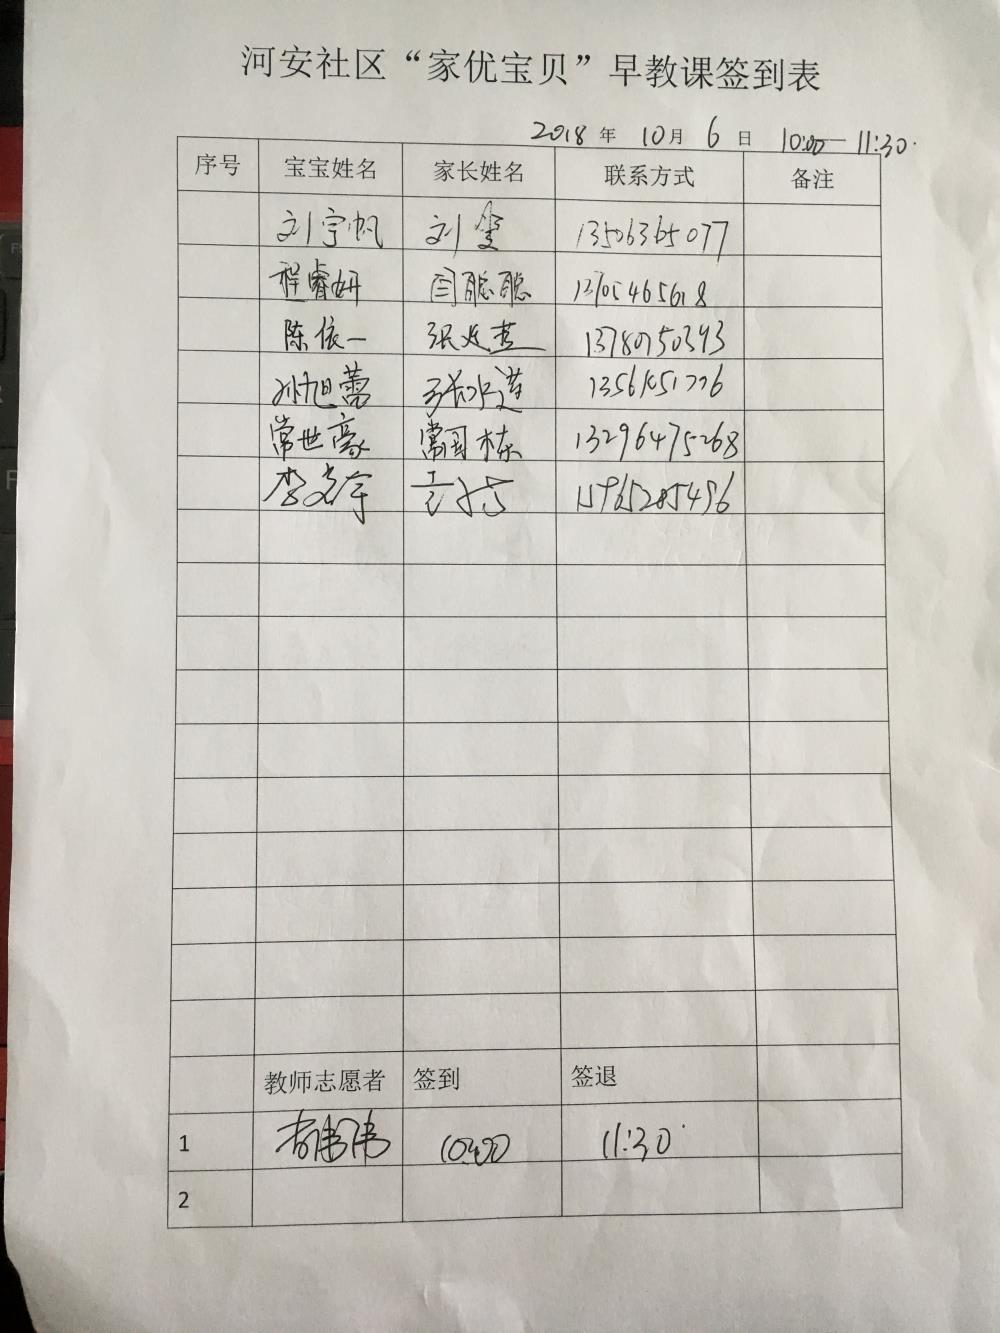 河安社区“家优宝贝”早教课签到表
2018 年 10 月 6 日 10:00—11:30.
序号 宝宝姓名 家长姓名 联系方式 备注
刘宇帆 刘 13506365077
程睿妍 闫聪聪 13705465618
陈依一 张 13780750393
孙旭蕾 张
常世豪 常国栋 13296475268
李 15965285496
教师志愿者 签到 签退
1 10:00 11:30
2